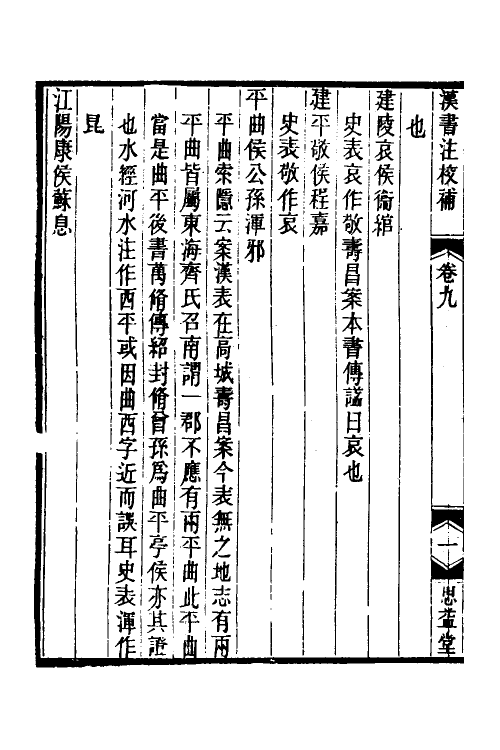 漢書注校補　卷九　一　思益堂
也
建陵哀侯衞綰
史表哀作敬壽昌案本書傳諡日哀也
建平敬侯程嘉
史表敬作哀
平曲侯公孫渾邪
平曲索隱云案漢表在高城壽昌案今表無之地志有兩
平曲皆屬東海齊氏召南謂一郡不應有兩平曲此平曲
當是曲平後書萬脩傳紹封脩曾孫爲曲平亭侯亦其證
也水經河水注作西平或因曲西字近而誤耳史表渾作
昆
江陽康侯蘇息